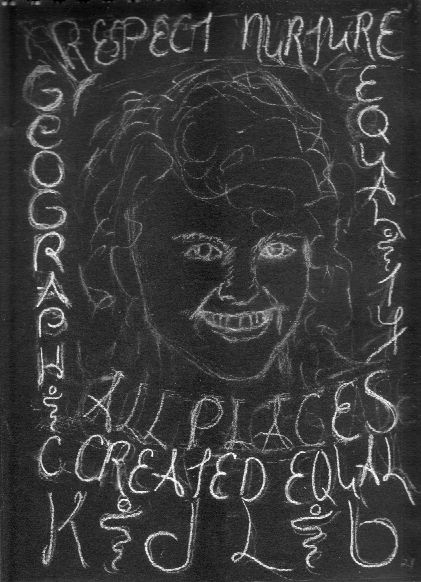 RESPECT NURTURE
GEOGRAPHIC
EQUALITY
ALL PLACES
CREATED EQUAL
KID LIB